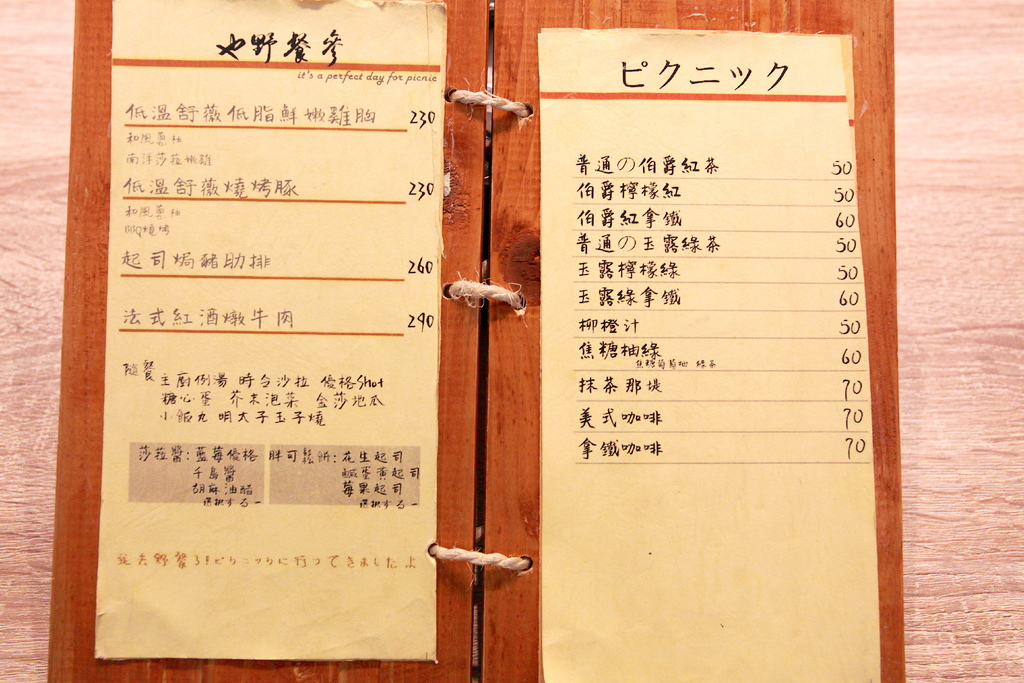 也野餐參
it's a perfect day for picnic
低溫舒薇低脂鮮嫩雞胸 230
和風蔥柚
南洋莎拉嫩雞
低溫舒薇燒烤豚 230
和風蔥柚
BBQ燒烤
起司焗豬肋排 260
法式紅酒燉牛肉 290
隨餐
主廚例湯 時令沙拉 優格Shot
糖心蛋 芥末泡菜 金莎地瓜
小飯丸 明太子玉子燒
莎拉醬:藍莓優格
千島醬
胡麻油醋
選択する一
胖可鬆餅:花生起司
鹹蛋黃起司
莓果起司
選択する一
走去野餐了!ピクニックに行ってきましたよ
ピクニック
普通の伯爵紅茶 50
伯爵檸檬紅 50
伯爵紅拿鐵 60
普通の玉露綠茶 50
玉露檸檬綠 50
玉露綠拿鐵 60
柳橙汁 50
焦糖柚綠 60
焦糖葡萄柚 綠茶
抹茶那堤 70
美式咖啡 70
拿鐵咖啡 70